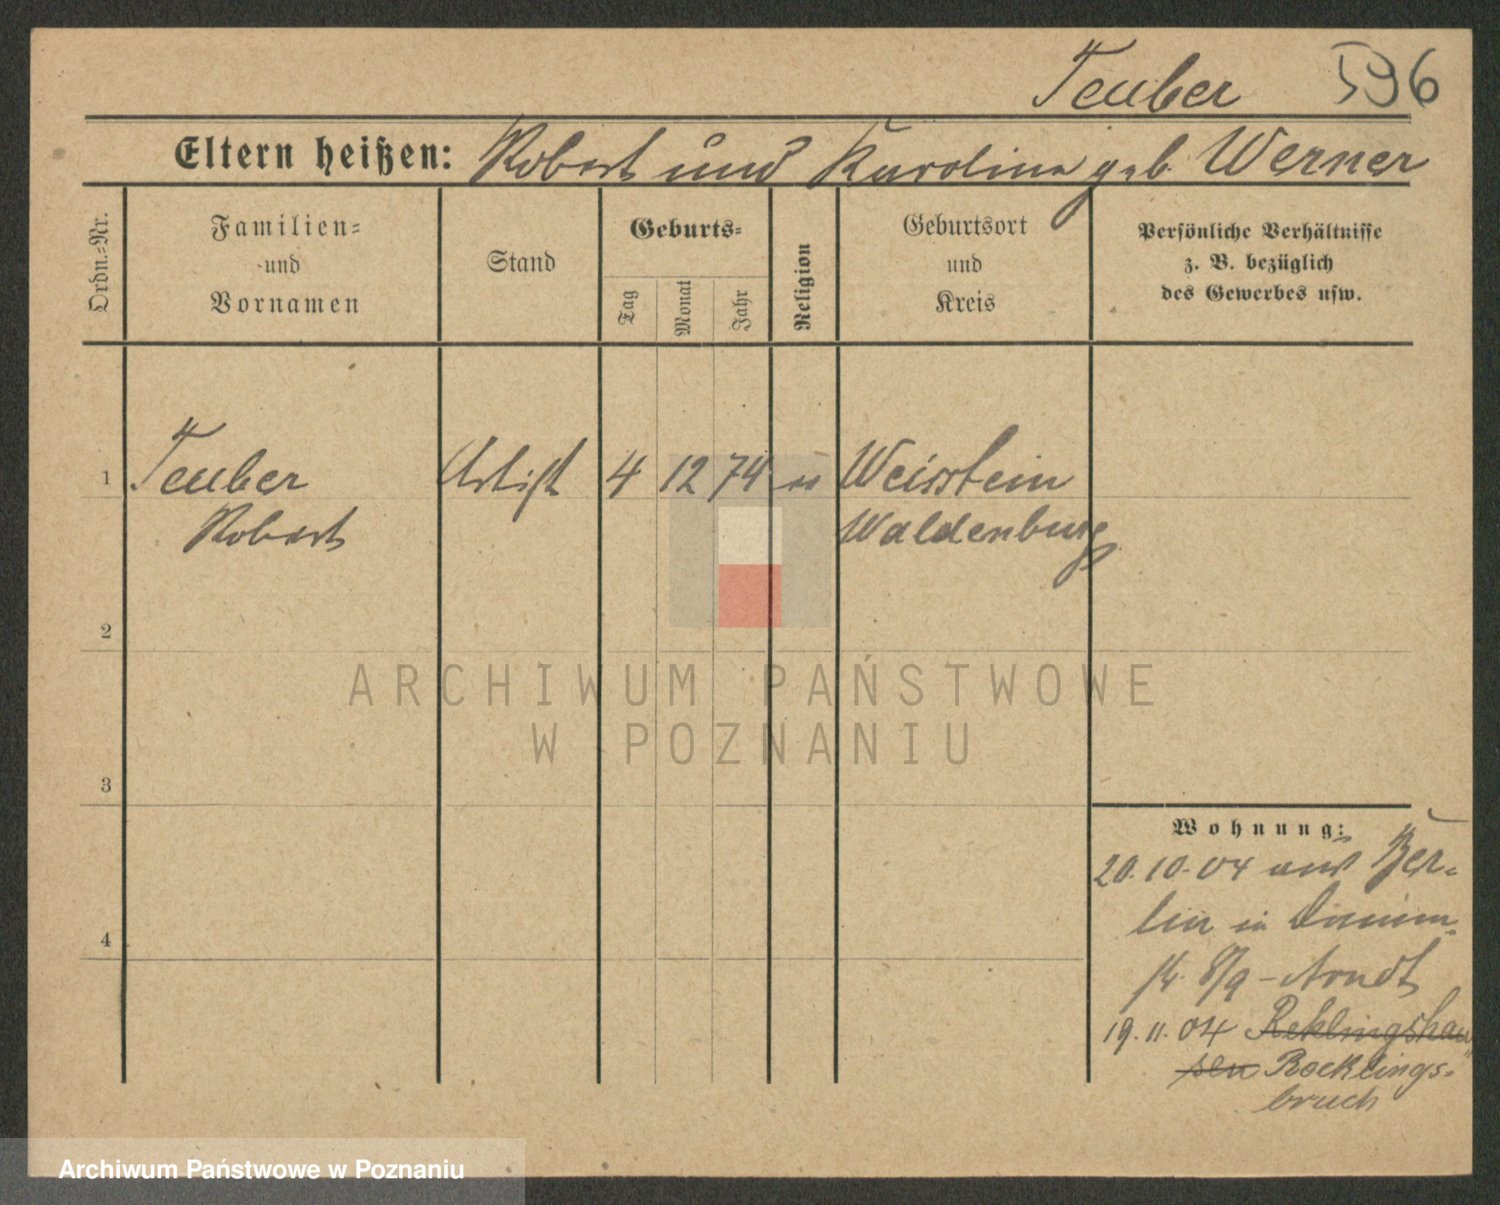 Teuber 596
Eltern heißen: Robert und Karolina geb. Werner
Ordn.-Nr.
Familien-
und
Vornamen
Stand
Geburts-
Tag
Monat
Jahr
Religion
Geburtsort
und
Kreis
Persönliche Verhältnisse
z. B. bezüglich
des Gewerbes usw.
1 Teuber Artist 4 12 74 Weisstein
Robert Waldenburg
2
3
4
Wohnung:
20.10.04 aus Ber-
lin in
8/9 - Arndt
19.11.04 Reklingshau
sen Rocklings-
bruch
ARCHIWUM PAŃSTWOWE
W POZNANIU
Archiwum Państwowe w Poznaniu